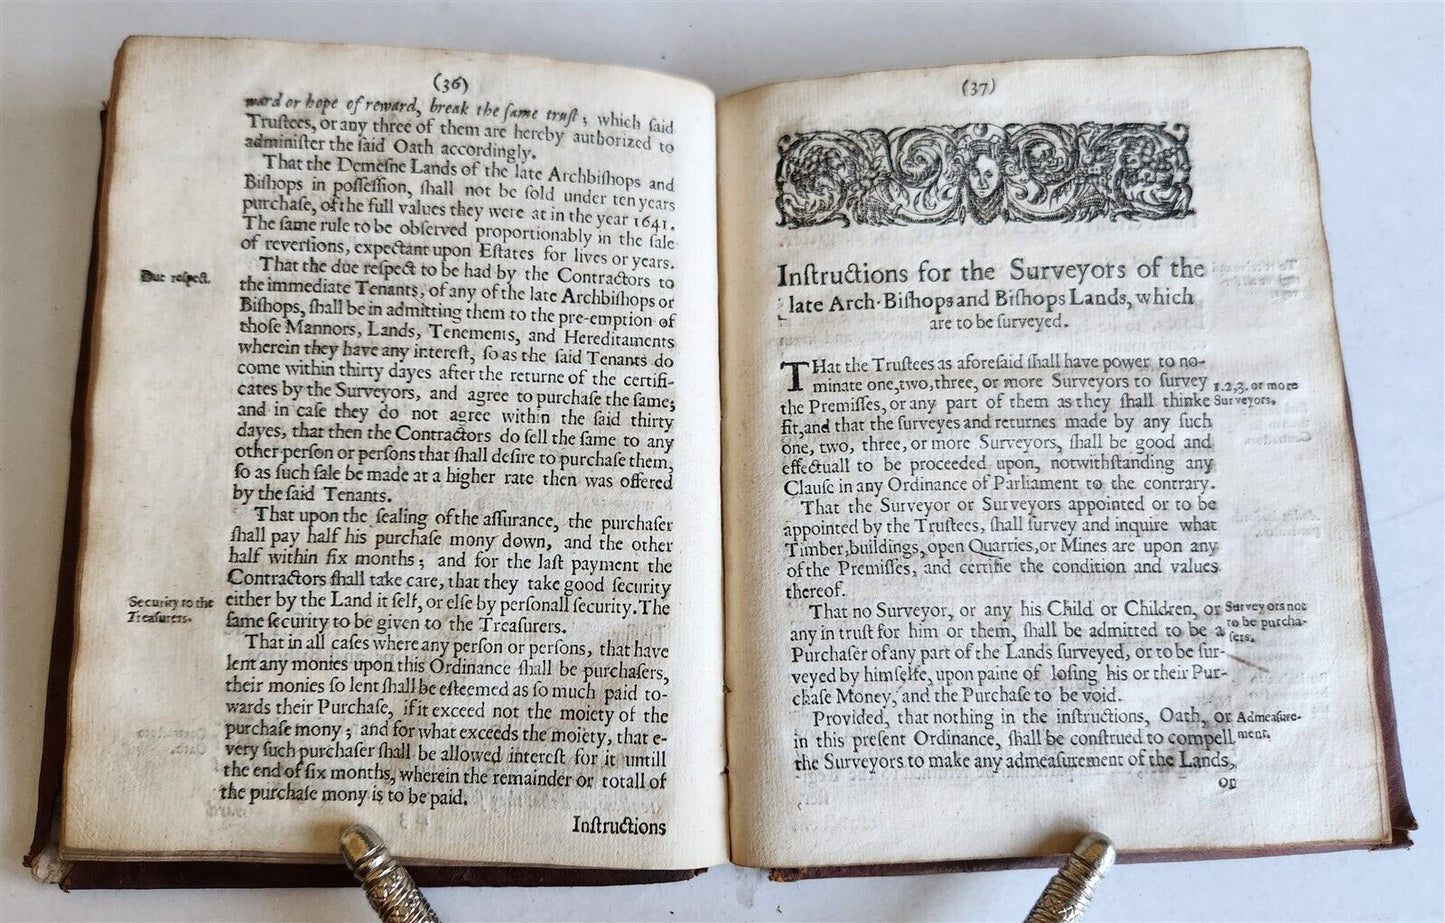 (36)
ward or hope of reward, break the ſame truſt; which ſaid
Truſtees, or any three of them are hereby authorized to
adminiſter the ſaid Oath accordingly.
That the Demeſne Lands of the late Archbiſhops and
Biſhops in poſſeſſion, ſhall not be ſold under ten years
purchaſe, of the full values they were at in the year 1641.
The ſame rule to be obſerved proportionably in the ſale
of reverſions, expectant upon Eſtates for lives or years.
Due reſpect.
That the due reſpect to be had by the Contractors to
the immediate Tenants, of any of the late Archbiſhops or
Biſhops, ſhall be in admitting them to the pre-emption of
thoſe Mannors, Lands, Tenements, and Hereditaments
wherein they have any intereſt, ſo as the ſaid Tenants do
come within thirty dayes after the returne of the certifi-
cates by the Surveyors, and agree to purchaſe the ſame;
and in caſe they do not agree within the ſaid thirty
dayes, that then the Contractors do ſell the ſame to any
other perſon or perſons that ſhall deſire to purchaſe them,
ſo as ſuch ſale be made at a higher rate then was offered
by the ſaid Tenants.
That upon the ſealing of the aſſurance, the purchaſer
ſhall pay half his purchaſe mony down, and the other
half within ſix months; and for the laſt payment the
Contractors ſhall take care, that they take good ſecurity
Security to the
Treaſurers.
either by the Land it ſelf, or elſe by perſonall ſecurity. The
ſame ſecurity to be given to the Treaſurers.
That in all caſes where any perſon or perſons, that have
lent any monies upon this Ordinance ſhall be purchaſers,
their monies ſo lent ſhall be eſteemed as ſo much paid to-
wards their Purchaſe, if it exceed not the moiety of the
purchaſe mony; and for what exceeds the moiety, that e-
very ſuch purchaſer ſhall be allowed intereſt for it untill
the end of ſix months, wherein the remainder or totall of
the purchaſe mony is to be paid.
Inſtructions
(37)
Inſtructions for the Surveyors of the
late Arch-Biſhops and Biſhops Lands, which
are to be ſurveyed.
THat the Truſtees as aforeſaid ſhall have power to no-
minate one, two, three, or more Surveyors to ſurvey
the Premiſſes, or any part of them as they ſhall thinke
1.2,3. or more
Surveyors.
fit, and that the ſurveyes and returnes made by any ſuch
one, two, three, or more Surveyors, ſhall be good and
effectuall to be proceeded upon, notwithſtanding any
Clauſe in any Ordinance of Parliament to the contrary.
That the Surveyor or Surveyors appointed or to be
appointed by the Truſtees, ſhall ſurvey and inquire what
Timber, buildings, open Quarries, or Mines are upon any
of the Premiſſes, and certifie the condition and values
thereof.
That no Surveyor, or any his Child or Children, or
any in truſt for him or them, ſhall be admitted to be a
Surveyors not
to be purcha-
ſers.
Purchaſer of any part of the Lands ſurveyed, or to be ſur-
veyed by himſelfe, upon paine of loſing his or their Pur-
chaſe Money, and the Purchaſe to be void.
Provided, that nothing in the inſtructions, Oath, or
in this preſent Ordinance, ſhall be conſtrued to compell
Admeaſure-
ment.
the Surveyors to make any admeaſurement of the Lands,
on